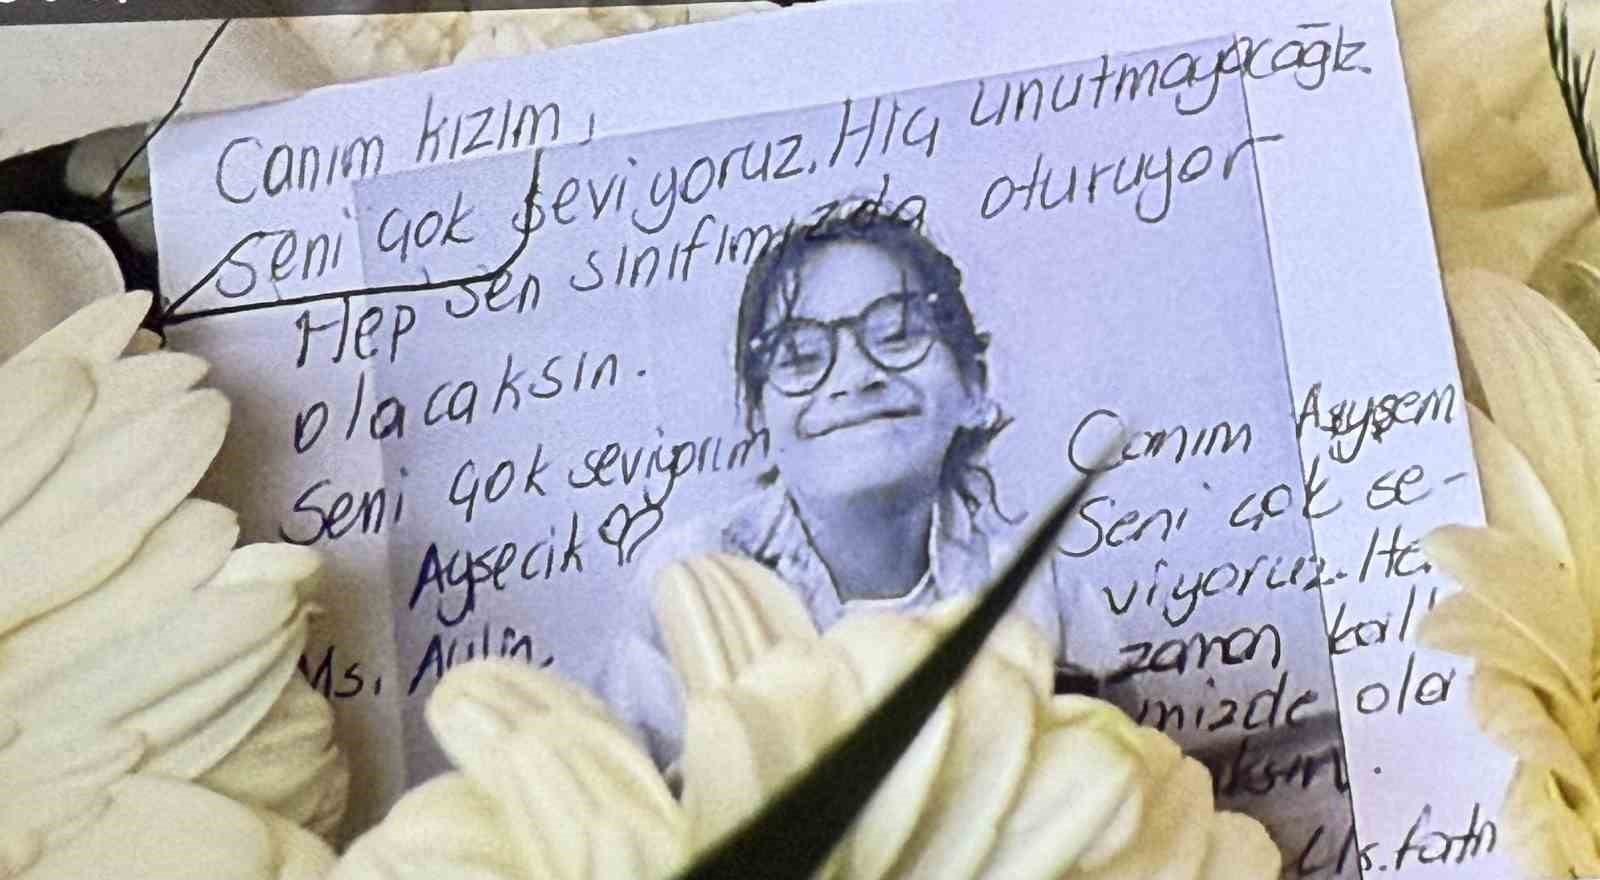 Canım kızım,
Seni çok seviyoruz. Hiç unutmayacağız.
Hep sen sınıfımızda oturuyor
olacaksın.
Seni çok seviyorum
Ayşecik ♡
Ms. Aylin.
Canım Ayşem
Seni çok se-
viyoruz. He
zaman kal
mizde ola
ksın.
Ms.